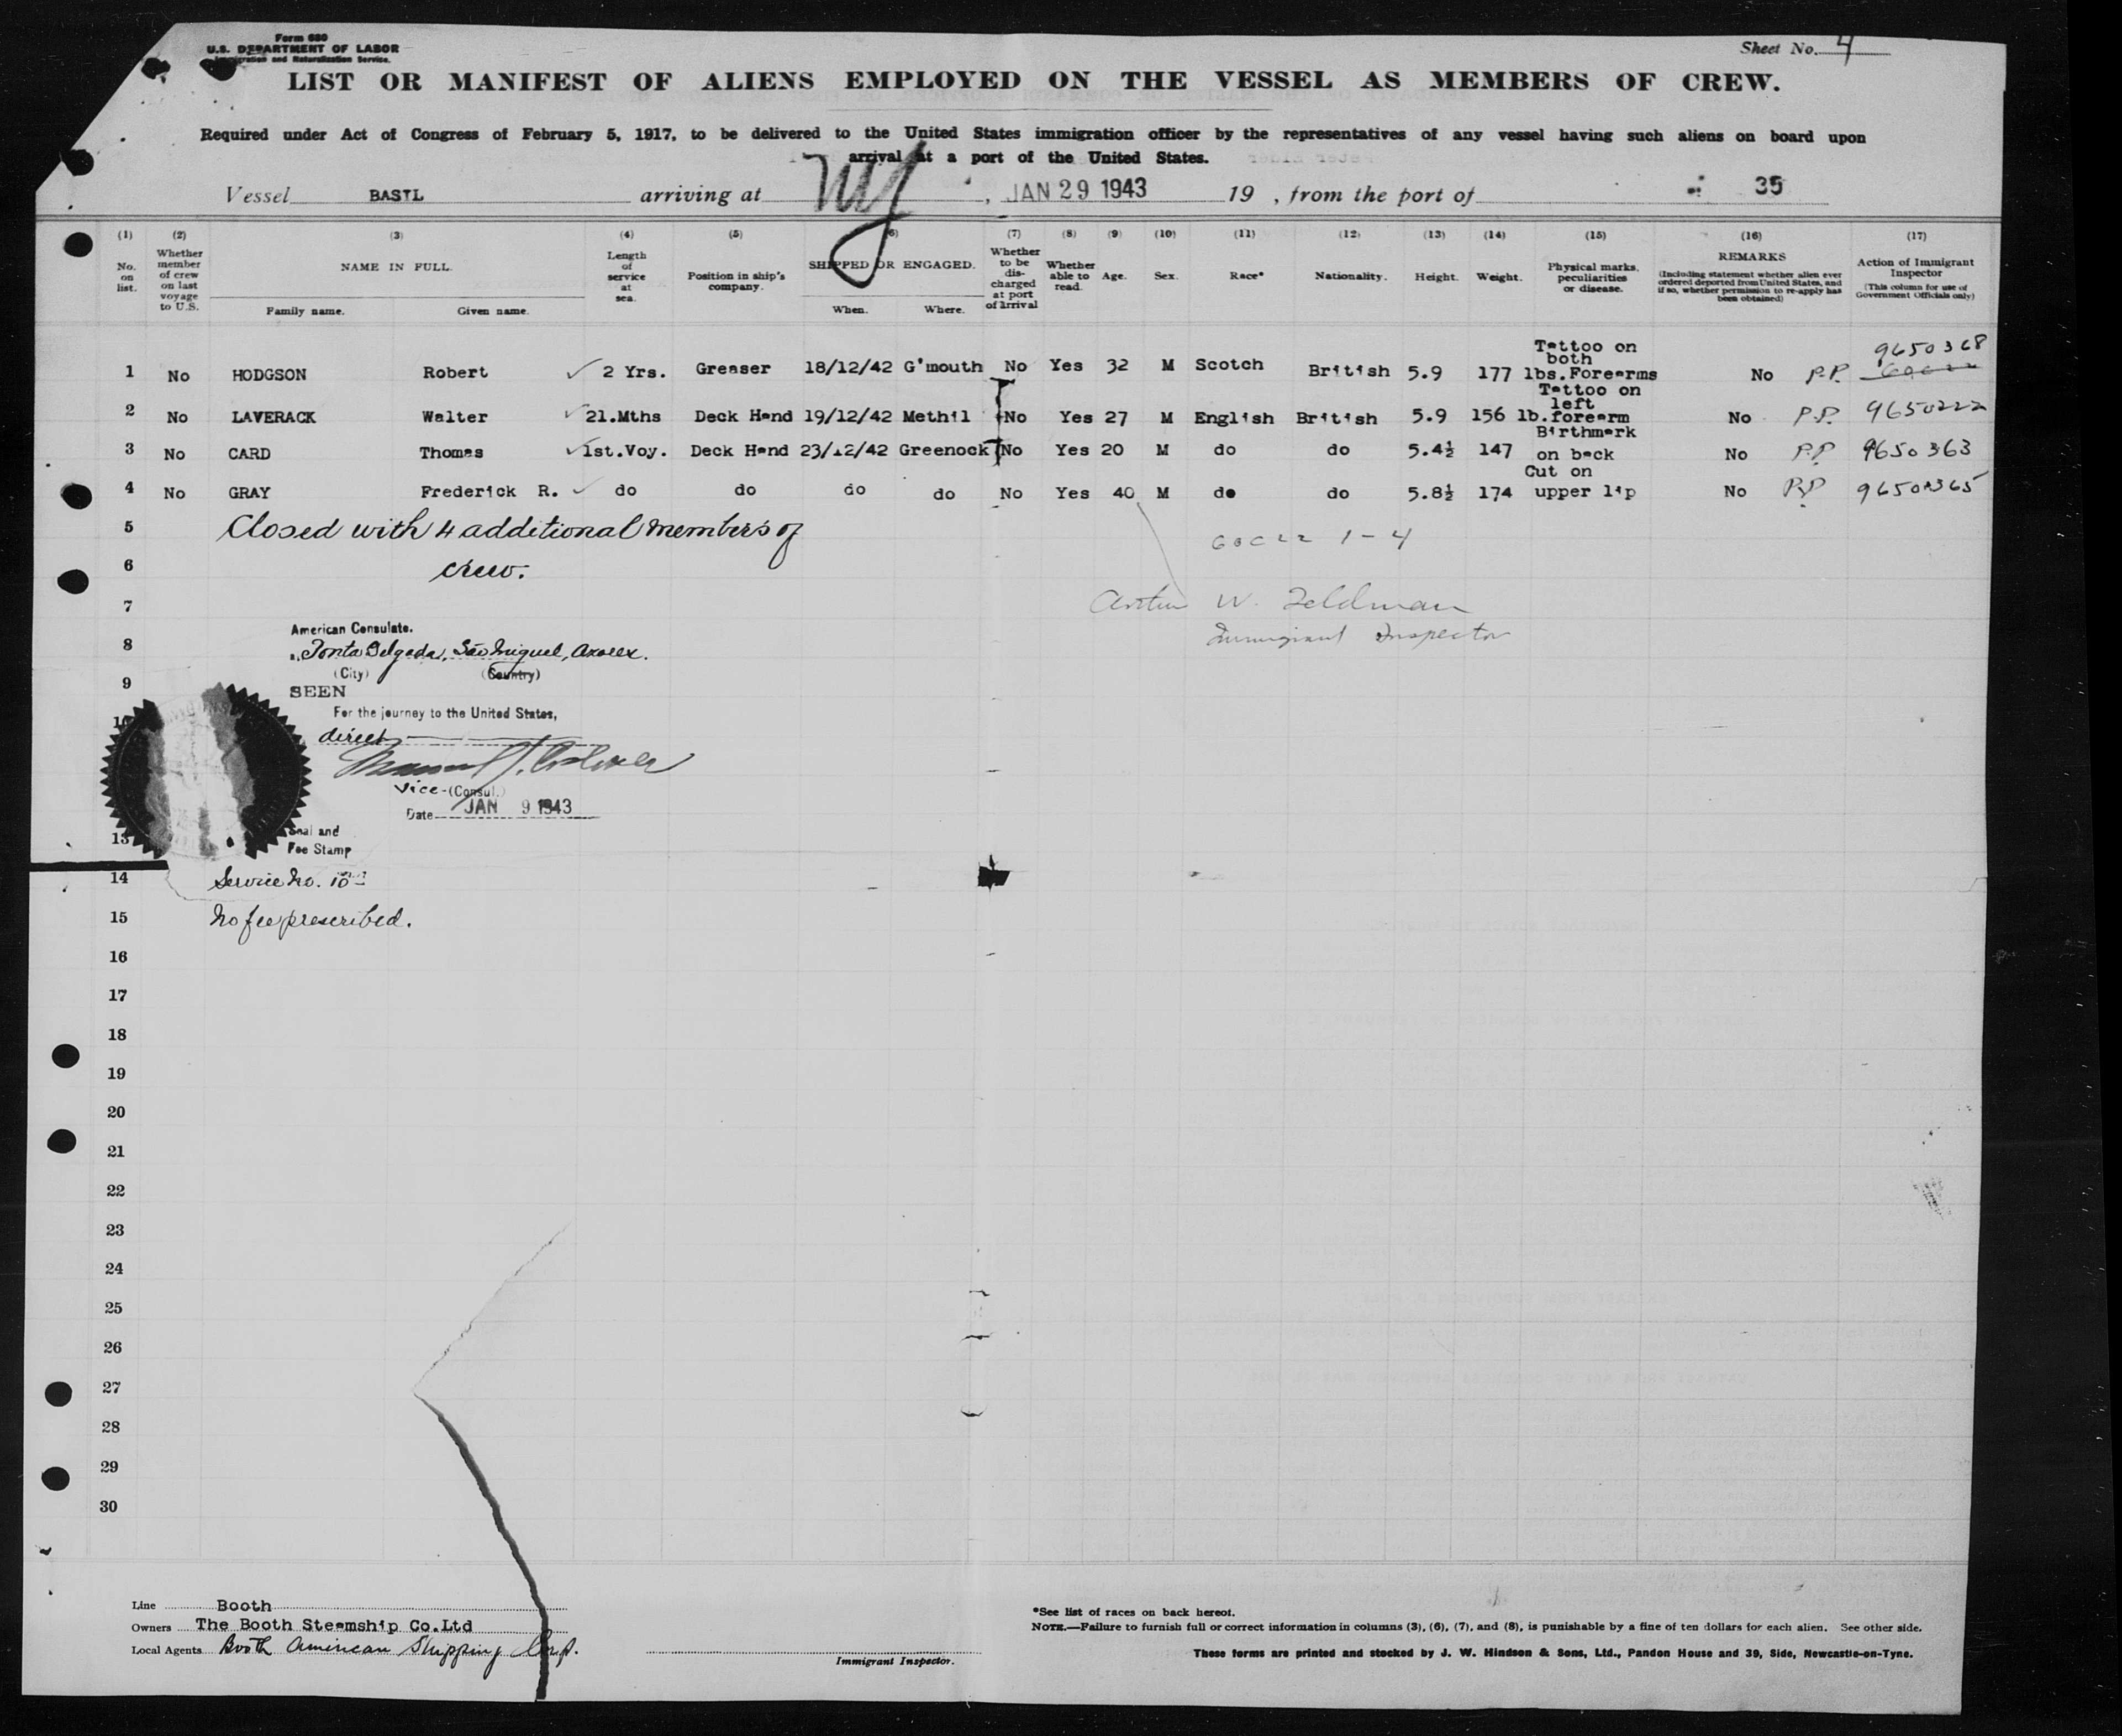 Form 680
U.S. DEPARTMENT OF LABOR
Immigration and Naturalization Service.
Sheet No. 4
LIST OR MANIFEST OF ALIENS EMPLOYED ON THE VESSEL AS MEMBERS OF CREW.
Required under Act of Congress of February 5, 1917, to be delivered to the United States immigration officer by the representatives of any vessel having such aliens on board upon
arrival at a port of the United States.
Vessel BASIL arriving at NY, JAN 29 1943 19 , from the port of 35
(1) (2) (3) (4) (5) (6) (7) (8) (9) (10) (11) (12) (13) (14) (15) (16) (17)
No. on list. Whether member of crew on last voyage to U.S. NAME IN FULL. Family name. Given name. Length of service at sea. Position in ship's company. SHIPPED OR ENGAGED. When. Where. Whether to be discharged at port of arrival Whether able to read. Age. Sex. Race* Nationality. Height. Weight. Physical marks, peculiarities or disease. REMARKS (Including statement whether alien ever ordered deported from United States, and if so, whether permission to re-apply has been obtained) Action of Immigrant Inspector (This column for use of Government Officials only)
1 No HODGSON Robert ✓ 2 Yrs. Greaser 18/12/42 G'mouth No Yes 32 M Scotch British 5.9 177 lbs. Tattoo on both Forearms No P.P. 9650368
2 No LAVERACK Walter ✓ 21.Mths Deck Hand 19/12/42 Methil No Yes 27 M English British 5.9 156 lb. Tattoo on left forearm No P.P. 9650222
3 No CARD Thomas ✓ 1st.Voy. Deck Hand 23/12/42 Greenock No Yes 20 M do do 5.4½ 147 Birthmark on back No P.P 9650363
4 No GRAY Frederick R. ✓ do do do do No Yes 40 M do do 5.8½ 174 Cut on upper lip No P.P 9650365
5 Closed with 4 additional members of
6 crew.
1-4
7 W. Feldman
Immigrant Inspector
American Consulate.
8 Ponta Delgada, São Miguel, Azores.
(City) (Country)
9 SEEN
10 For the journey to the United States,
direct
Vice-(Consul.)
Date JAN 9 1943
13 Seal and
Fee Stamp
14 Service No.
15 No fee prescribed.
16
17
18
19
20
21
22
23
24
25
26
27
28
29
30
Line Booth
Owners The Booth Steamship Co.Ltd
Local Agents Booth American Shipping Corp.
Immigrant Inspector.
*See list of races on back hereof.
NOTE.—Failure to furnish full or correct information in columns (3), (6), (7), and (8), is punishable by a fine of ten dollars for each alien. See other side.
These forms are printed and stocked by J. W. Hindson & Sons, Ltd., Pandon House and 39, Side, Newcastle-on-Tyne.